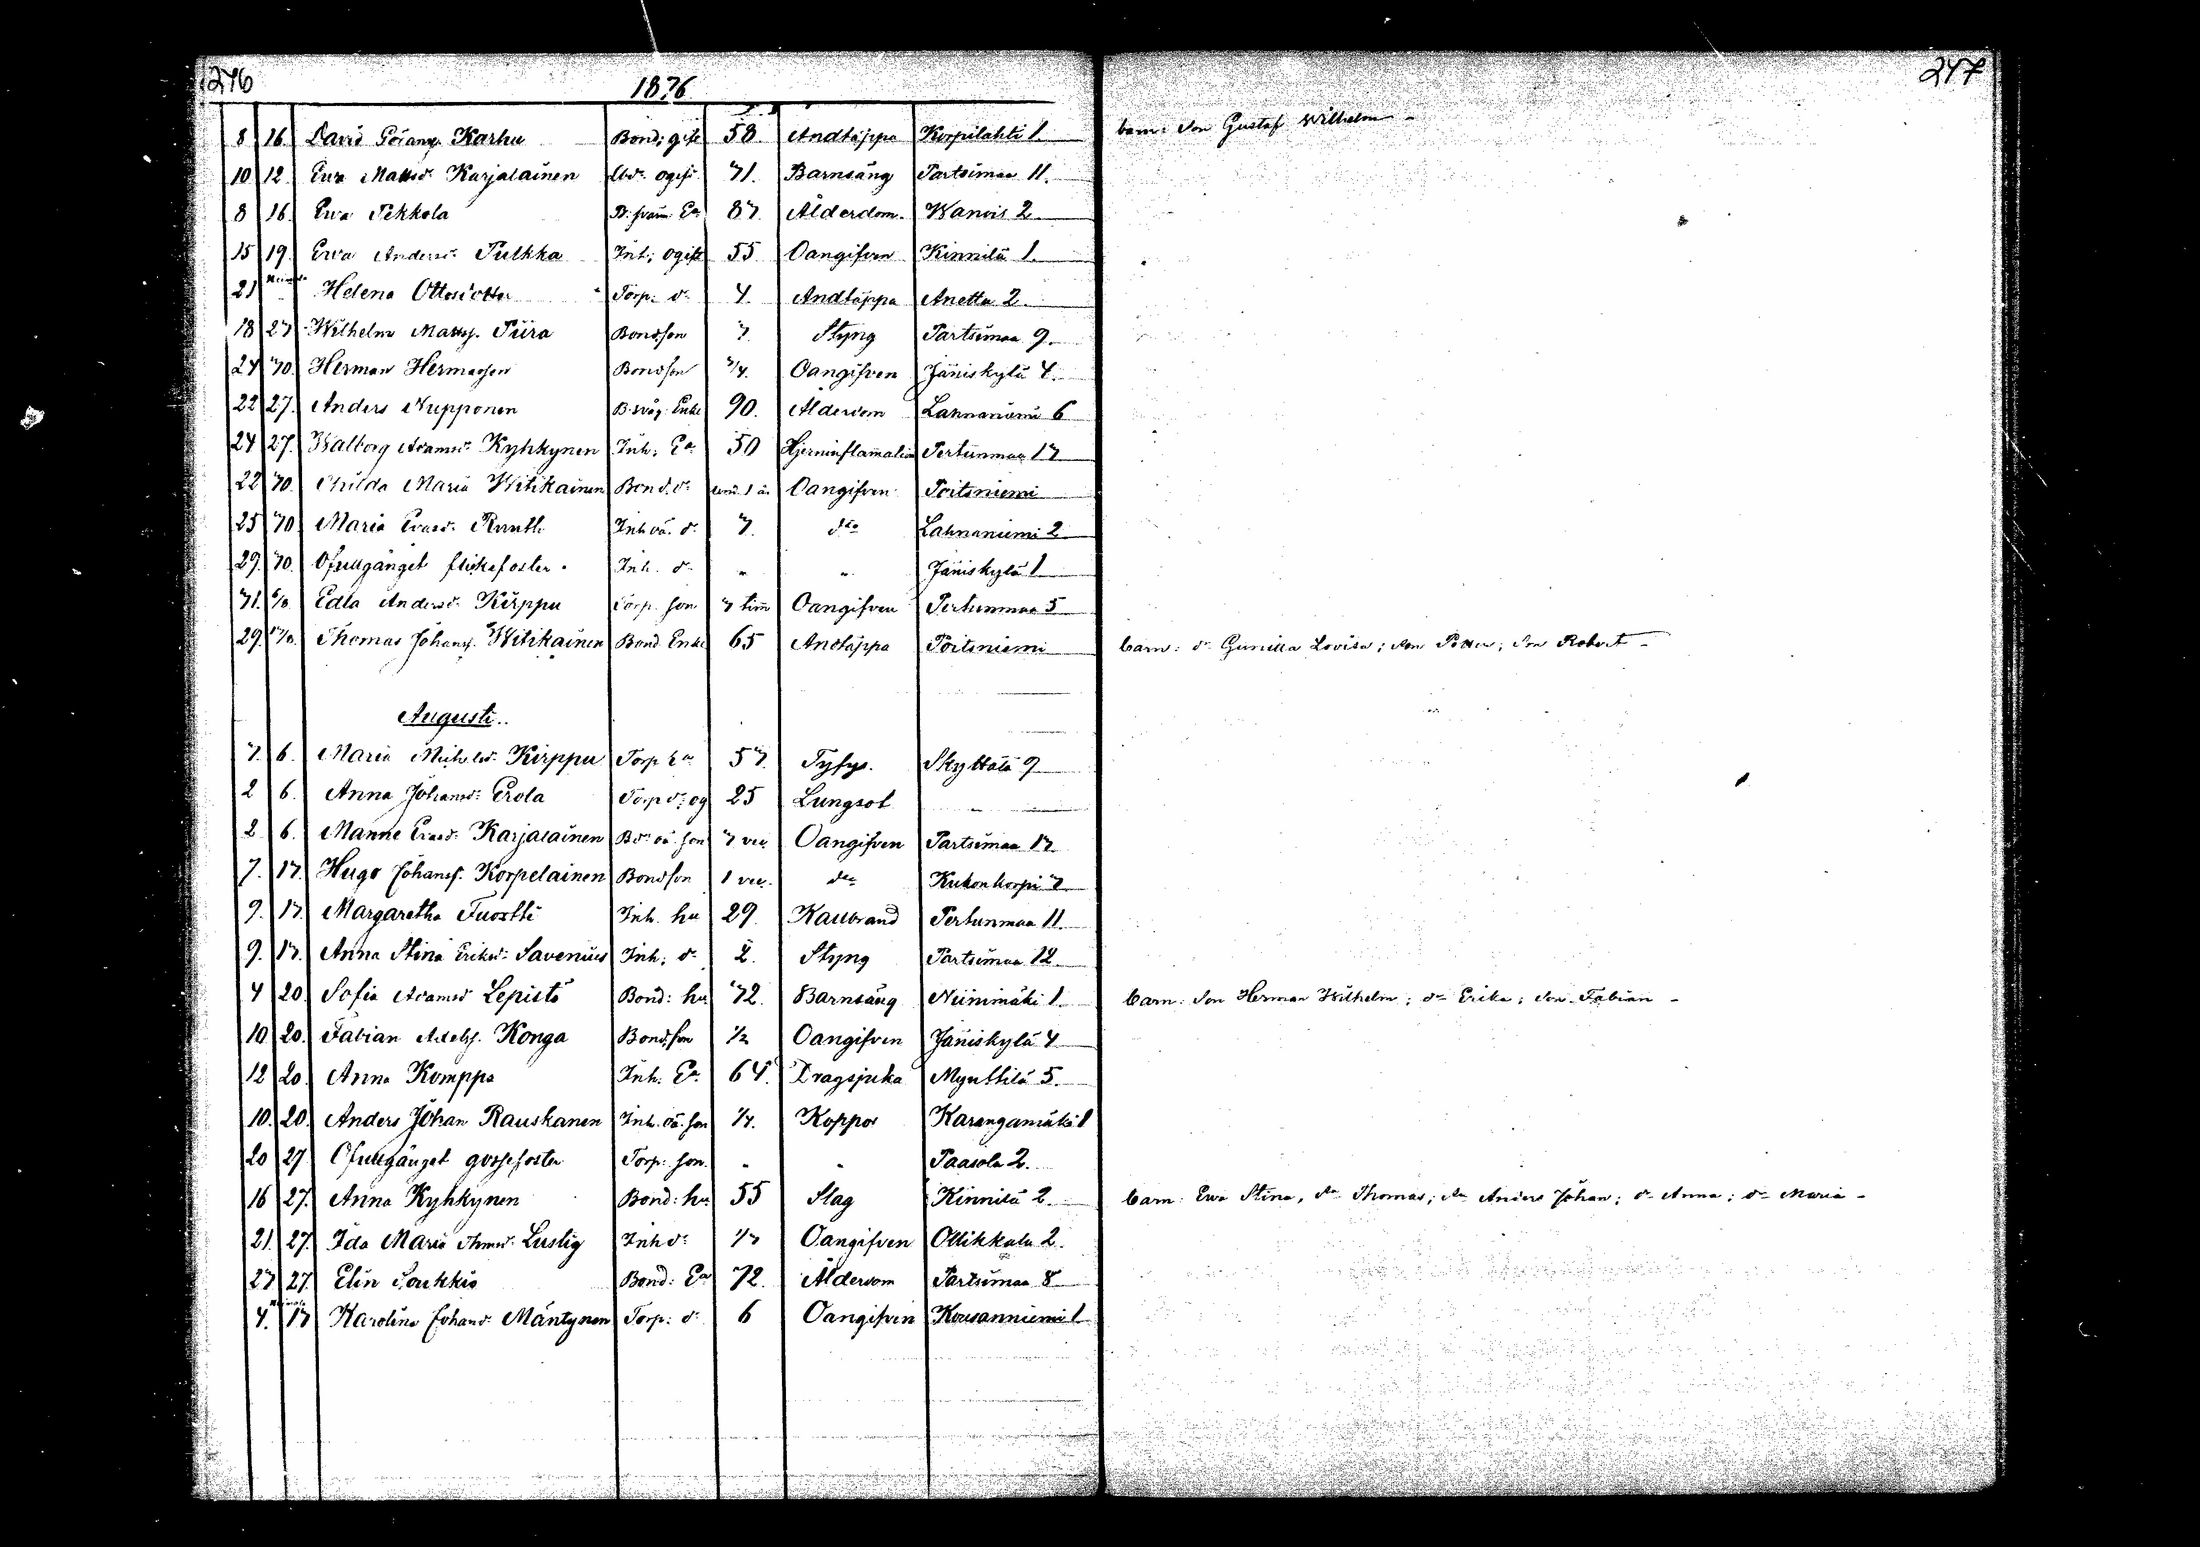 246
247
1876
8 16. David Göranss. Karhu Bond; gift 58 Andtäppa Korpilahti 1. barn: son Gustaf Wilhelm -
10 12. Eva Mattsd. Karjalainen ogift 71. Barnsäng Partsimaa 11.
8 16. Ewa Pekkola 87. Ålderdom. Wanois 2
15 19. Ewa Andersd. Pulkka Inh; ogift 55 Oangifven Kinnilä 1.
21 Helena Ottosdotter Torp. d. 4. Andtäppa Anetta 2.
18 27 Wilhelm Matts. Piira Bondson 7. Styng Partsimaa 9.
24 70. Herman Hermansson Bondson 7/4. Oangifven Jäniskylä 4.
22 27. Anders Nupponen B. svåg. Enkl 90. Ålderdom Lahnaniemi 6
24 27. Walborg Adamsd. Kyhkynen Inh. Ea 50 Hjerninflamation Pertunmaa 17
22 70. Hilda Maria Witikainen Bond. d. 1 år Oangifven Poitsniemi
25 70 Maria Erasd. Ruuth Inh oä. d. 7. dto Lahnaniemi 2
29. 70. Ofullgånget flickefoster. Inh. d. " " Jäniskylä 1
71. 6/8. Edla Andersd. Kirppu Torp. son 7 tim Oangifven Pertunmaa 5
29. Thomas Johans. Witikainen Bond Enkl 65 Andtäppa Poitsniemi barn: dr Gunilla Lovisa; son Petter; son Robert -
Augusti..
7. 6. Maria Michelsd. Kirppu Torp Ea 57. Tyfus. Skyttälä 9
2 6. Anna Johansd: Erola Torp d: og 25 Lungsot
2 6. Manne Erasd. Karjalainen Bdr oä. son 7 vec Oangifven Partsimaa 17.
7. 17. Hugo Johansf. Korpelainen Bondson 1 vec. dto Kukonkorpi 7
9. 17. Margaretha Tuostti Inh. hu 29. Kallbrand Pertunmaa 11.
9. 17. Anna Stina Eriksd. Savenius Inh; d. 2. Styng Partsimaa 12
4 20. Sofia Adamsd Lepistö Bond: hu 72. Barnsäng Niinimäki 1. barn: son Herman Wilhelm; dr Erika; son Fabian -
10 20. Fabian Adolfs. Konga Bondson 1/2 Oangifven Jäniskylä 4
12 20. Anna Komppa Inh. Ea. 64. Dragsjuka Mynttilä 5.
10. 20. Anders Johan Rauskanen Inh. oä. son 1/4. Koppor Karangamäki 1
20 27 Ofullgånget gossefoster Torp. son. " " Paasola 2.
16 27. Anna Kyhkynen Bond: hu 55 Slag Kinnilä 2 barn: Ewa Stina, son Thomas; son Anders Johan; dr Anna; dr Maria -
21. 27. Ida Maria Lustig Inh d. 1/7 Oangifven Ollikkala 2.
27 27. Elin Soukkio Bond: Ea 72. Ålderdom Partsimaa 8
4. 17 Karolina Johansd. Mäntynen Torp: d. 6 Oangifven Kousanniemi 1